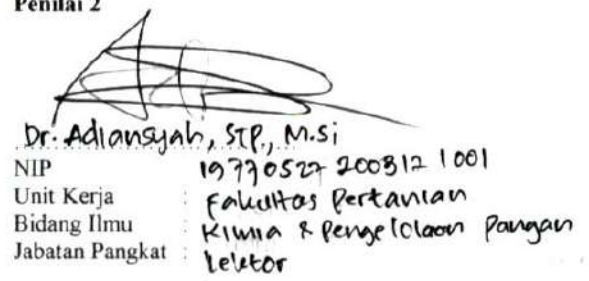 Penilai 2
Dr. Adiansyah, STP., M.Si
NIP 19770527 200312 1 001
Unit Kerja : Fakultas Pertanian
Bidang Ilmu : Kimia & Pengelolaan Pangan
Jabatan Pangkat : Lektor